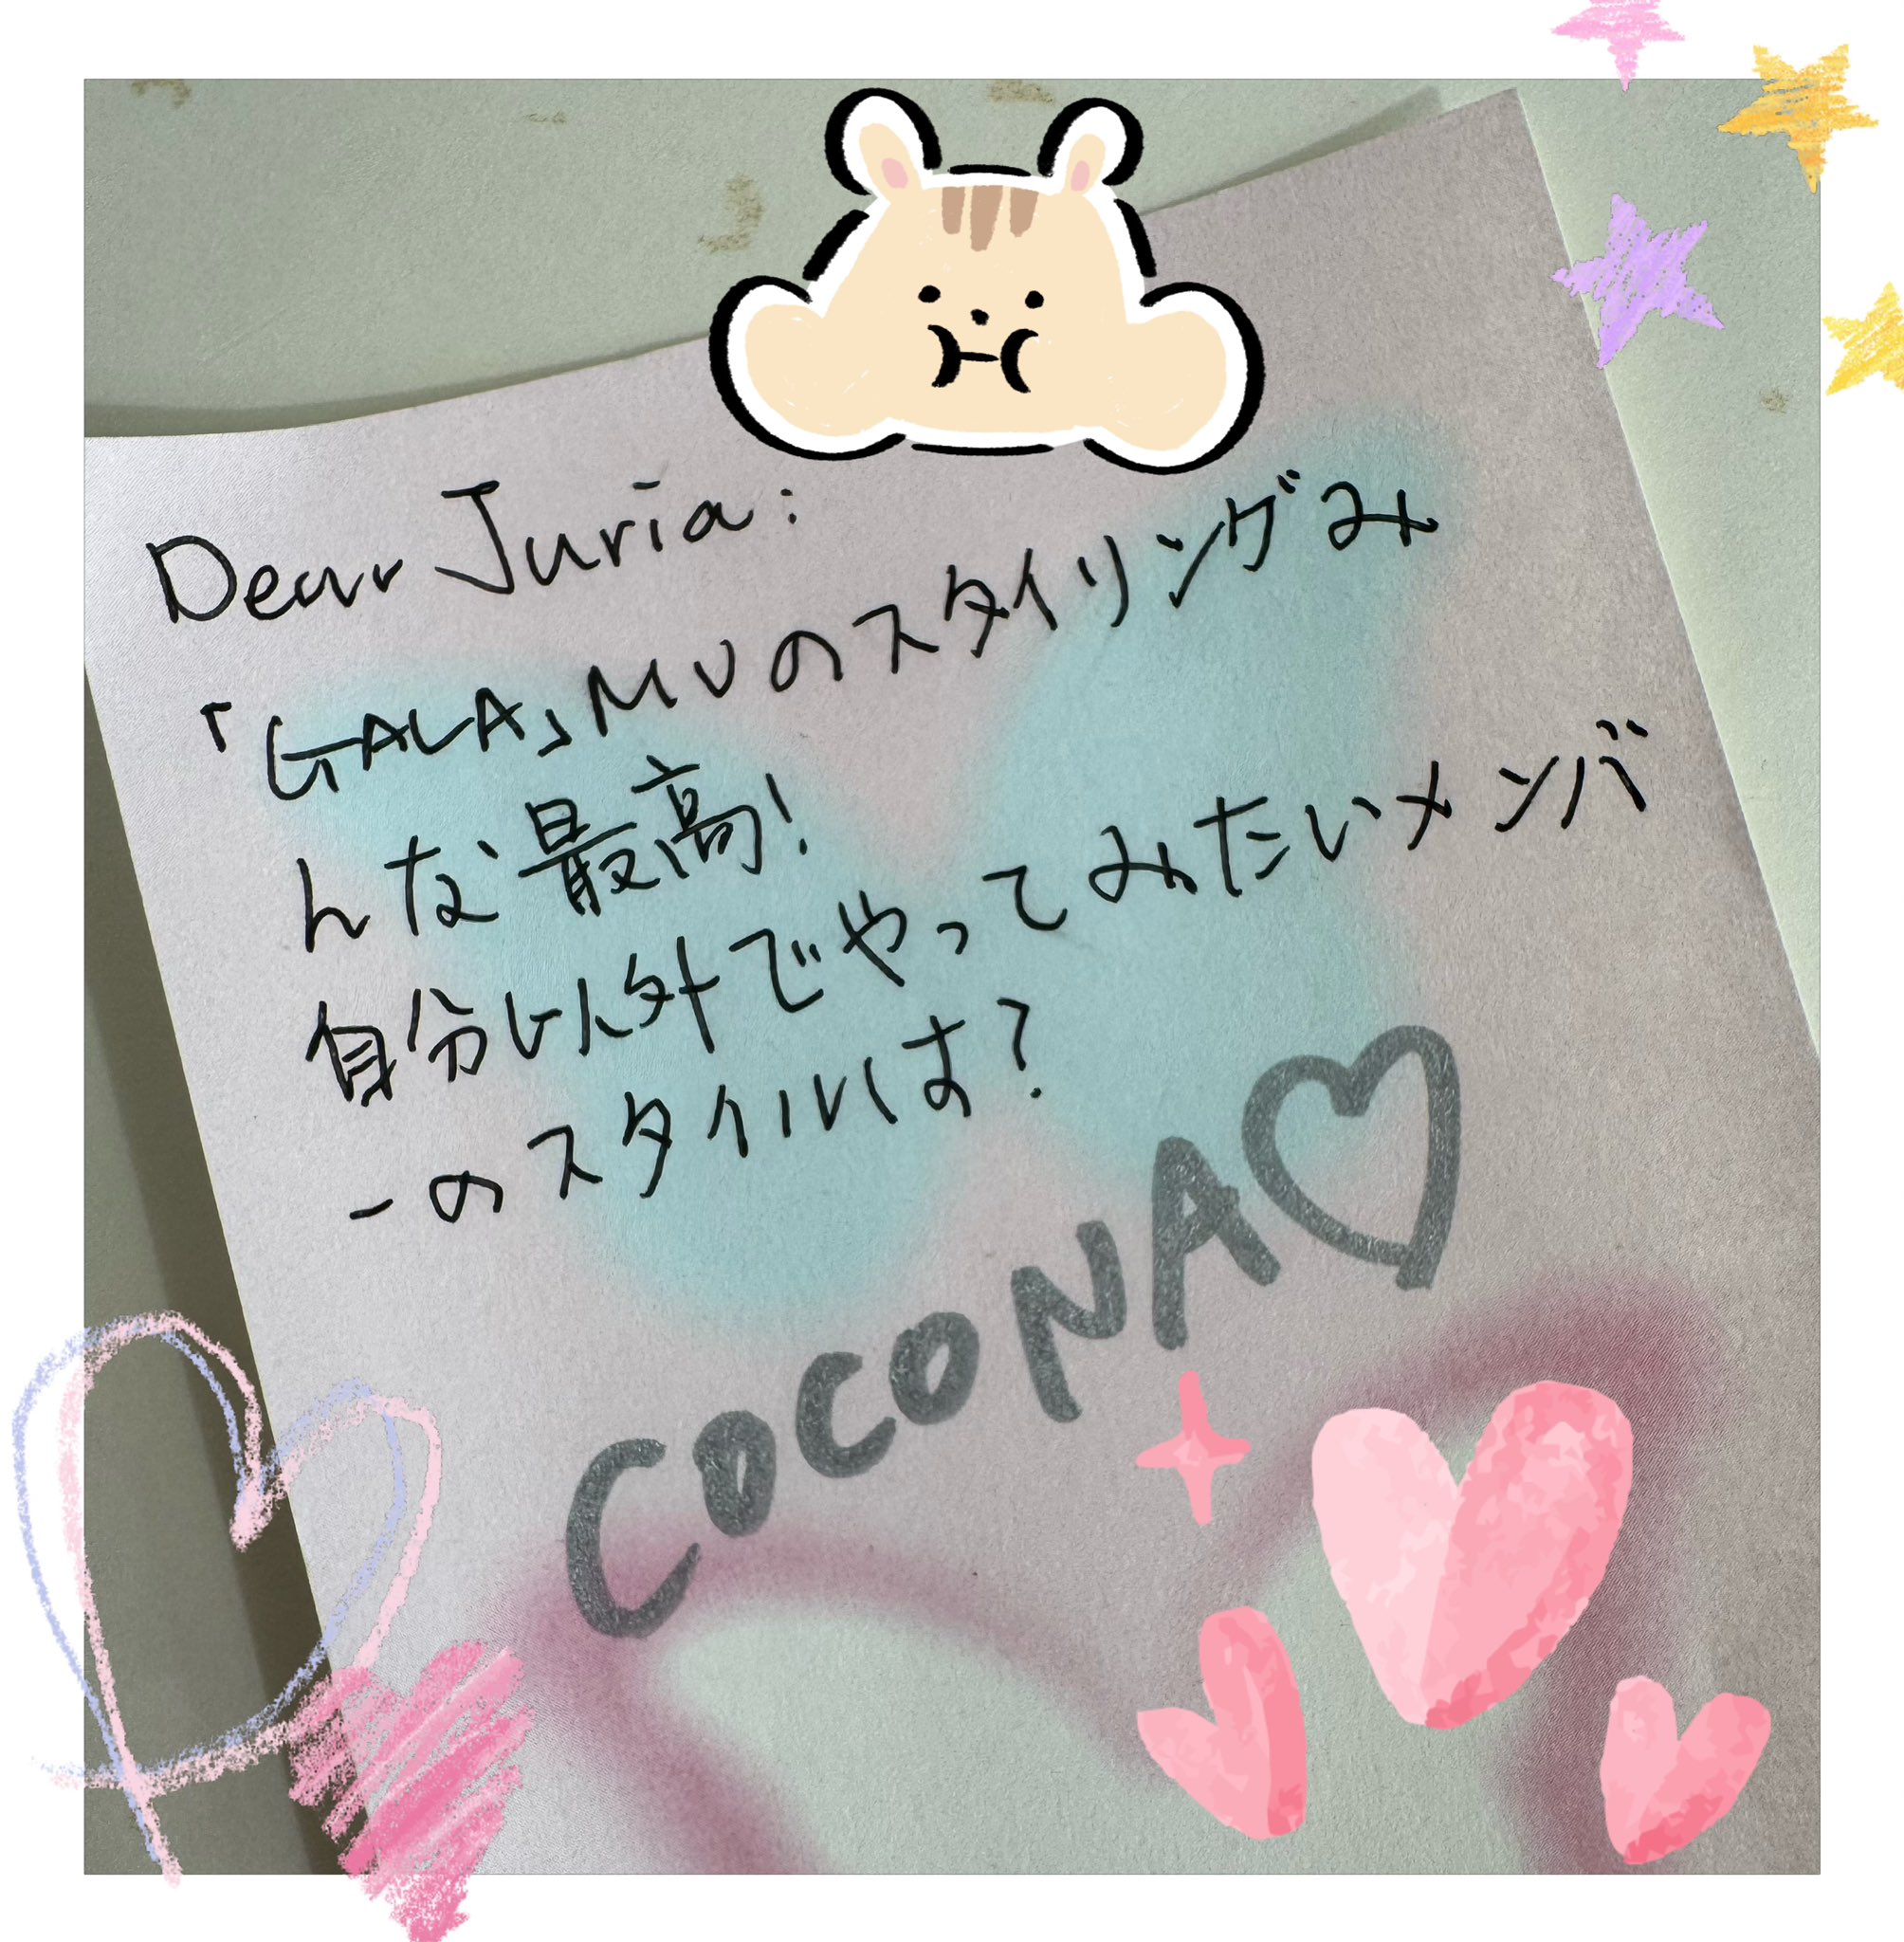 Dear Juria:
「GALA」MVのスタイリングみ
んな最高!
自分以外でやってみたいメンバ
ーのスタイルは?
COCONA♡